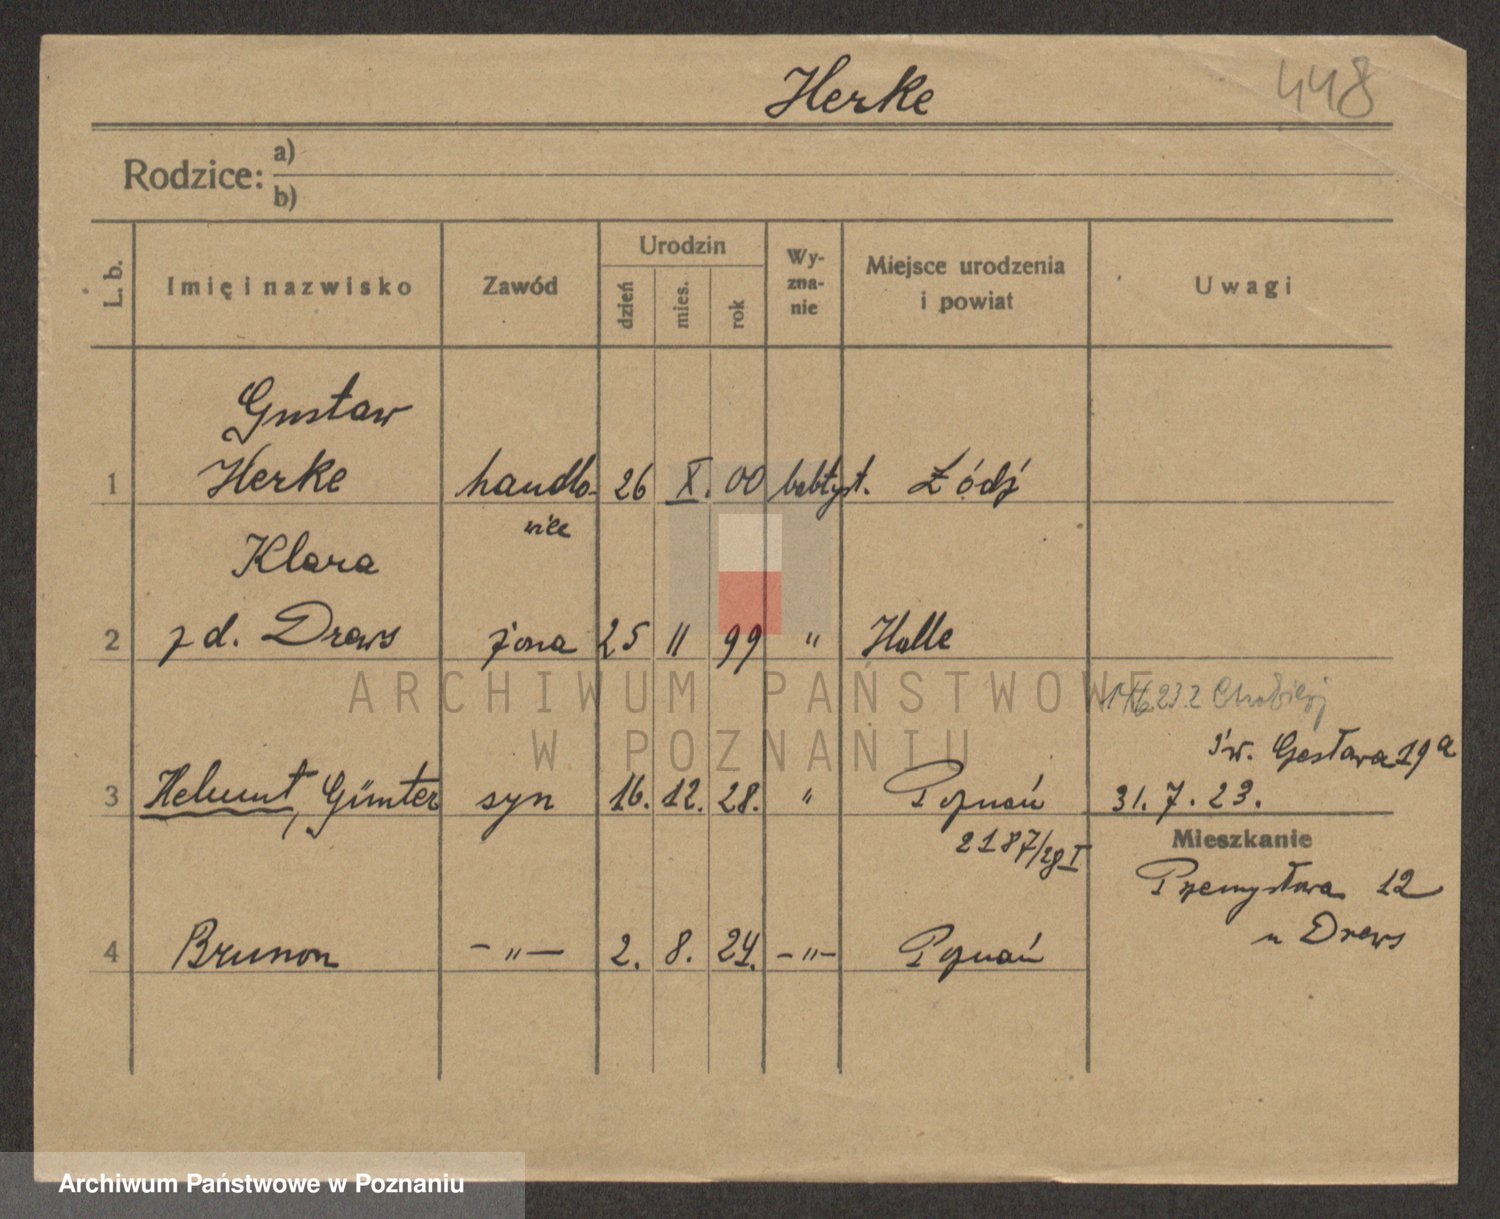 Herke
448
Rodzice: a)
b)
L. b.
Imię i nazwisko
Zawód
Urodzin
dzień
mies.
rok
Wy-
zna-
nie
Miejsce urodzenia
i powiat
Uwagi
Gustaw
1 Herke handlo- 26 X. 00 babtyst. Łódź
wiec
Klara
2 z d. Drews żona 25 11 99 " Halle
ARCHIWUM PAŃSTWOWE
W POZNANIU
św. Gosława 19a
3 Helmut, Günter syn 16. 12. 28. " Poznań 31. 7. 23.
2187/29 I
Mieszkanie
Przemysława 12
u Drews
4 Brunon – " – 2. 8. 24. – " – Poznań
Archiwum Państwowe w Poznaniu